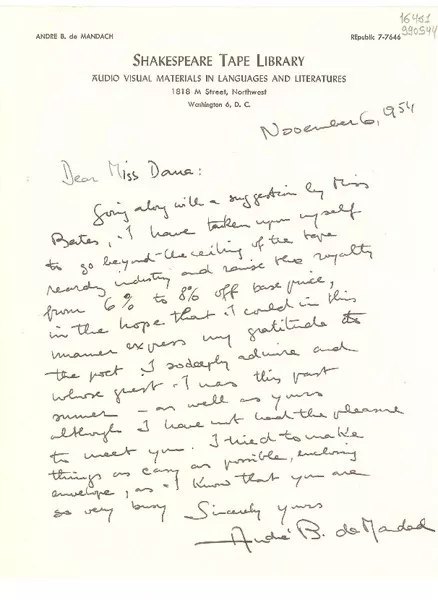 16451
990544
ANDRE B. de MANDACH
REpublic 7-7646
SHAKESPEARE TAPE LIBRARY
AUDIO VISUAL MATERIALS IN LANGUAGES AND LITERATURES
1818 M Street, Northwest
Washington 6, D. C.
November 6, 1954
Dear Miss Dana:
Going along with a suggestion by Miss
Bates, I have taken upon myself
to go beyond the ceiling of the tape
industry and raise the royalty
from 6% to 8% off base price,
in the hope that I could in this
manner express my gratitude to
the poet I so deeply admire and
whose guest I was this past
summer – as well as yours
although I have not had the pleasure
to meet you. I tried to make
things as easy as possible, enclosing
envelope, as I know that you are
so very busy
Sincerely yours
André B. de Mandach